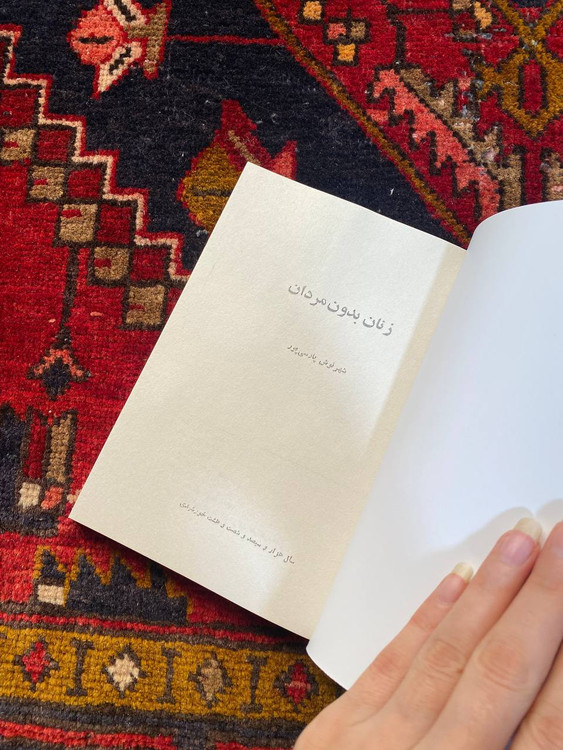 زنان بدون مردان
شهرنوش پارسی‌پور
سال هزار و سیصد و شصت و هشت خورشیدی